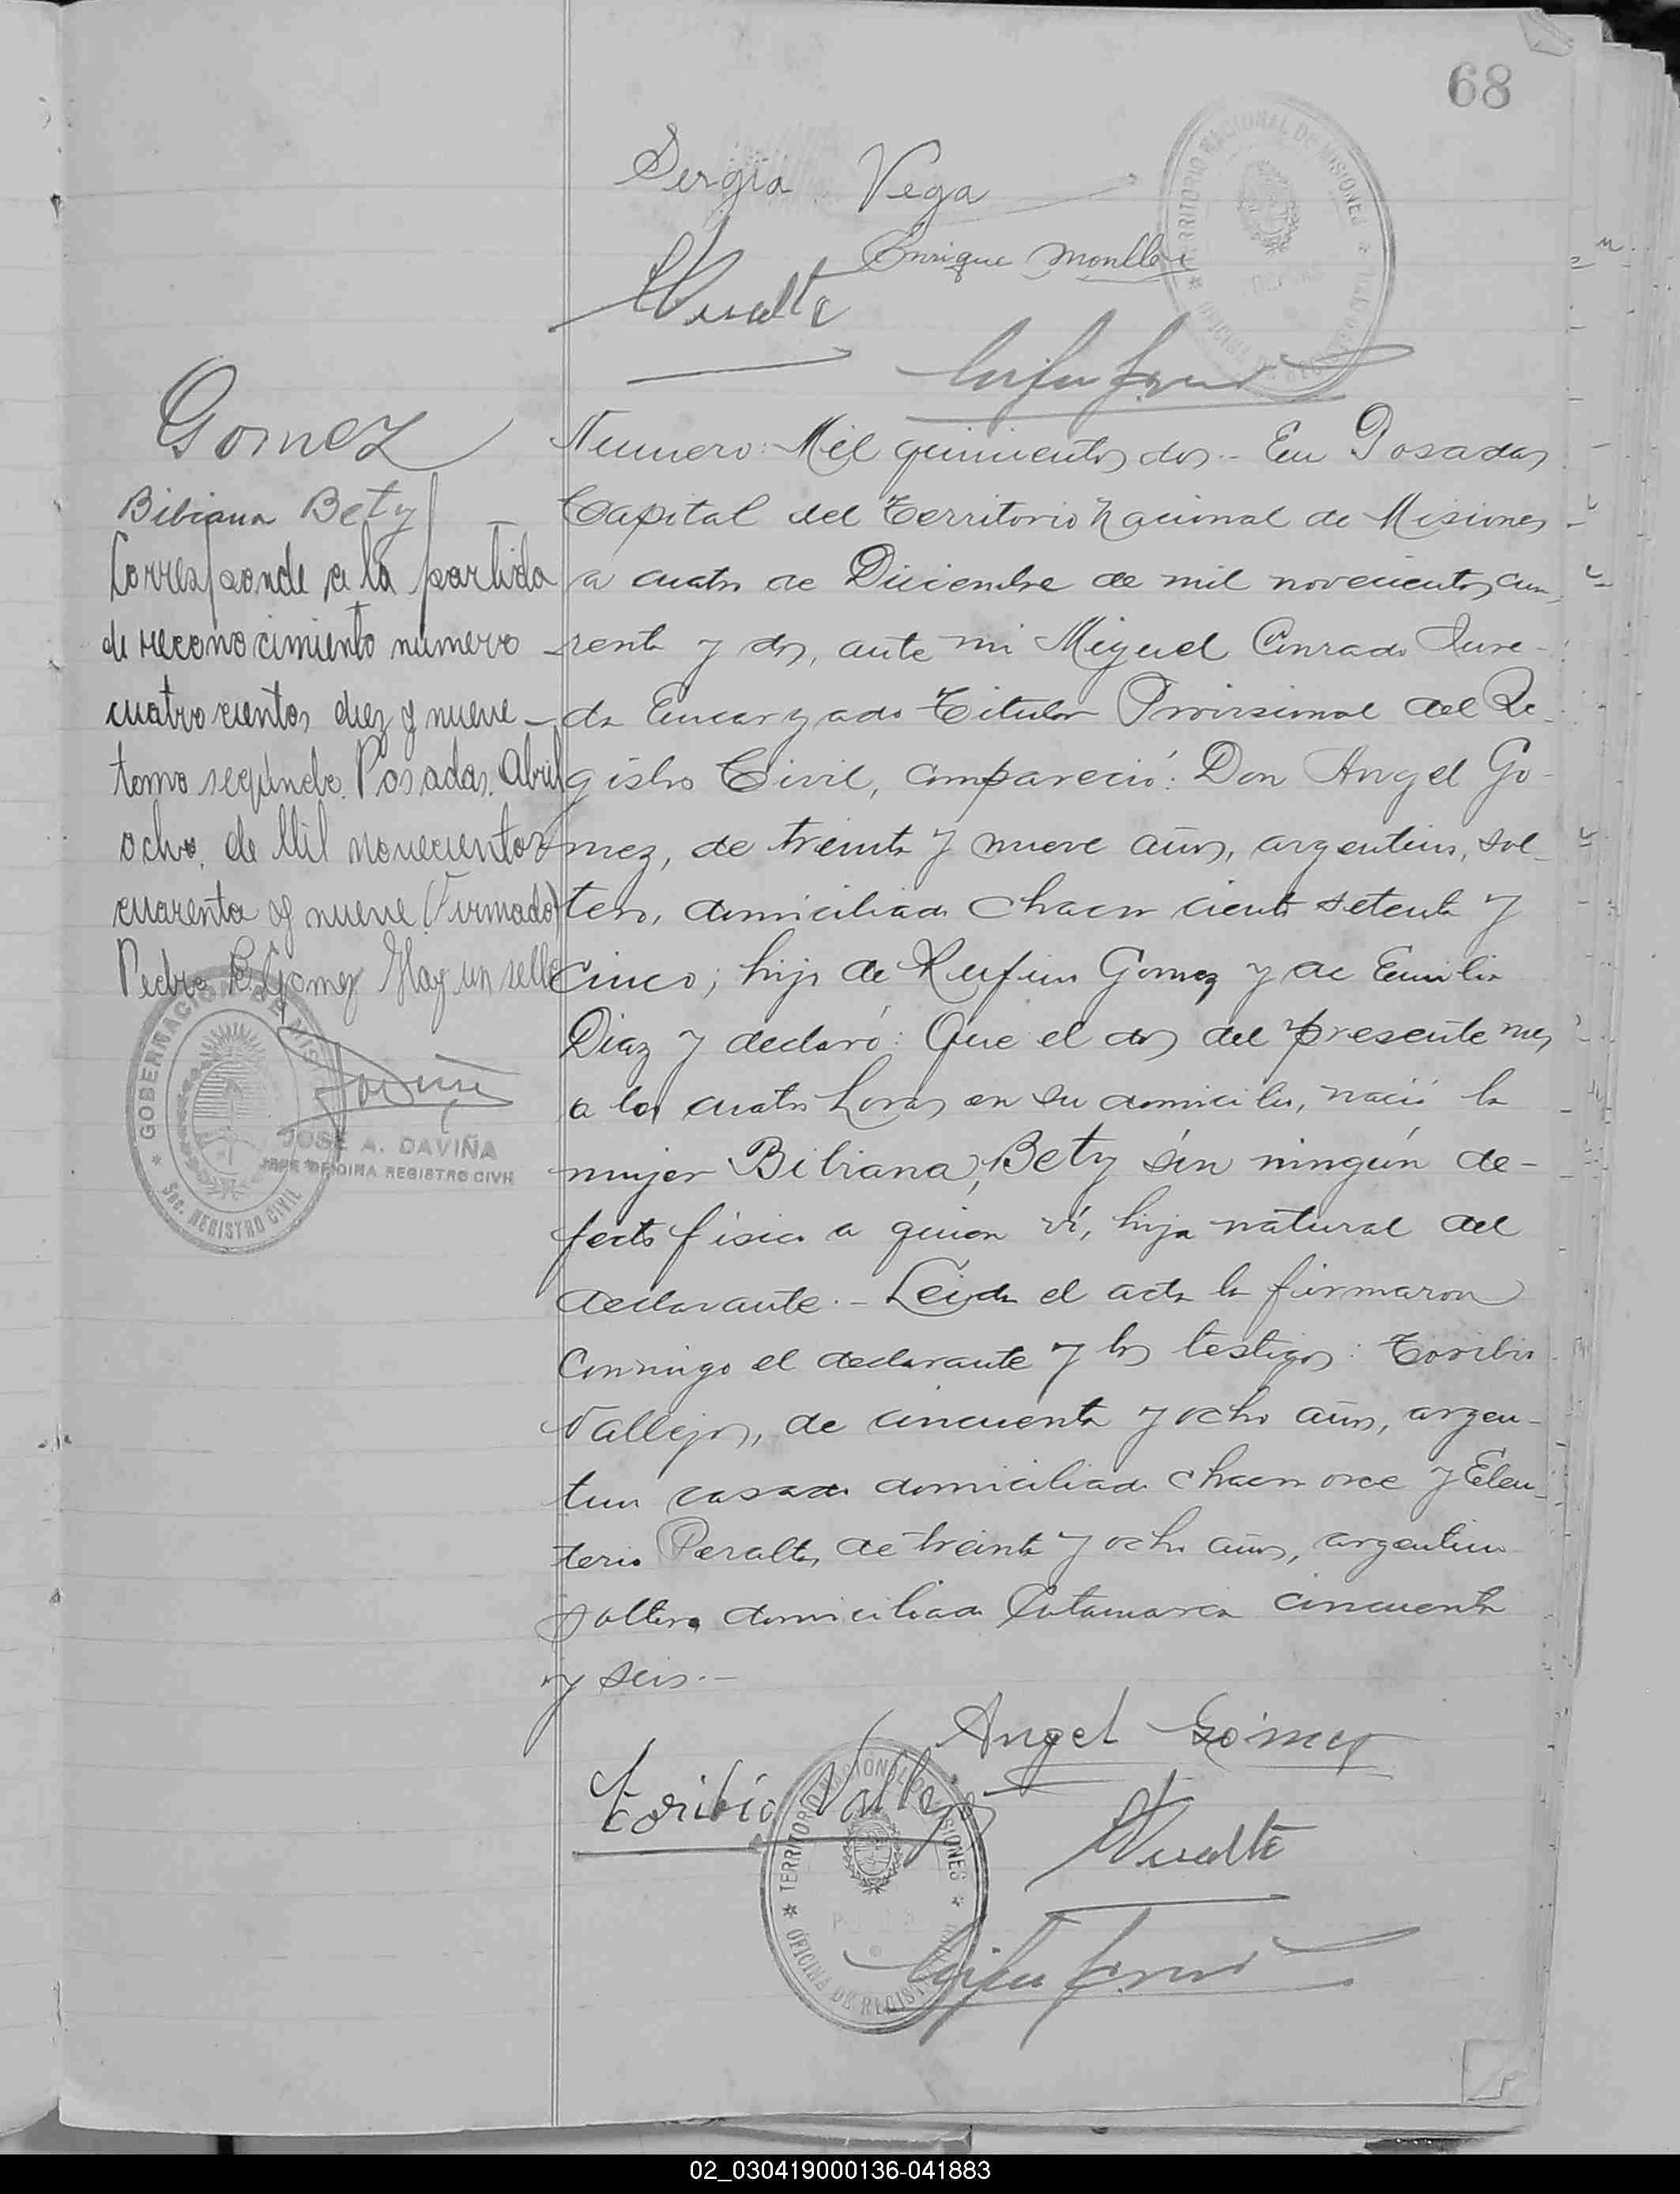 68
Sergia Vega
Enrique Monllor
Gomez
Bibiana Bety
Corresponde a la partida
de reconocimiento numero
cuatrocientos diez y nueve
tomo segundo. Posadas. Abril
ocho. de Mil novecientos
cuarenta y nueve (Firmado)
Pedro R. Gomez Hay un sello
GOBERNACION DE MISIONES
Sec. REGISTRO CIVIL
JOSE A. DAVIÑA
JEFE OFICINA REGISTRO CIVIL
TERRITORIO NACIONAL DE MISIONES
Numero: Mil quinientos dos.- En Posadas
Capital del Territorio Nacional de Misiones
a cuatro de Diciembre de mil novecientos cua-
renta y dos, ante mi Miguel Conrado
Encargado Titular Provisional del Re-
gistro Civil, compareció: Don Angel Go-
mez, de treinta y nueve años, argentino, sol-
tero, domiciliado chacra ciento setenta y
cinco; hijo de Rufino Gomez y de Emilia
Diaz y declaró: Que el dos del presente mes
a las cuatro horas en su domicilio, nació la
mujer Bibiana, Bety sin ningún de-
fecto fisico a quien ví, hija natural del
declarante.- Leida el acta la firmaron
conmigo el declarante y los testigos: Toribio
Vallejos, de cincuenta y ocho años, argen-
tino casado domiciliado chacra once y Eleu-
terio Peralta, de treinta y ocho años, argentino
soltero domiciliado Catamarca cincuenta
y seis.-
Angel Gómez
Toribio Vallejos
TERRITORIO NACIONAL DE MISIONES
OFICINA DE REGISTRO CIVIL
02_030419000136-041883